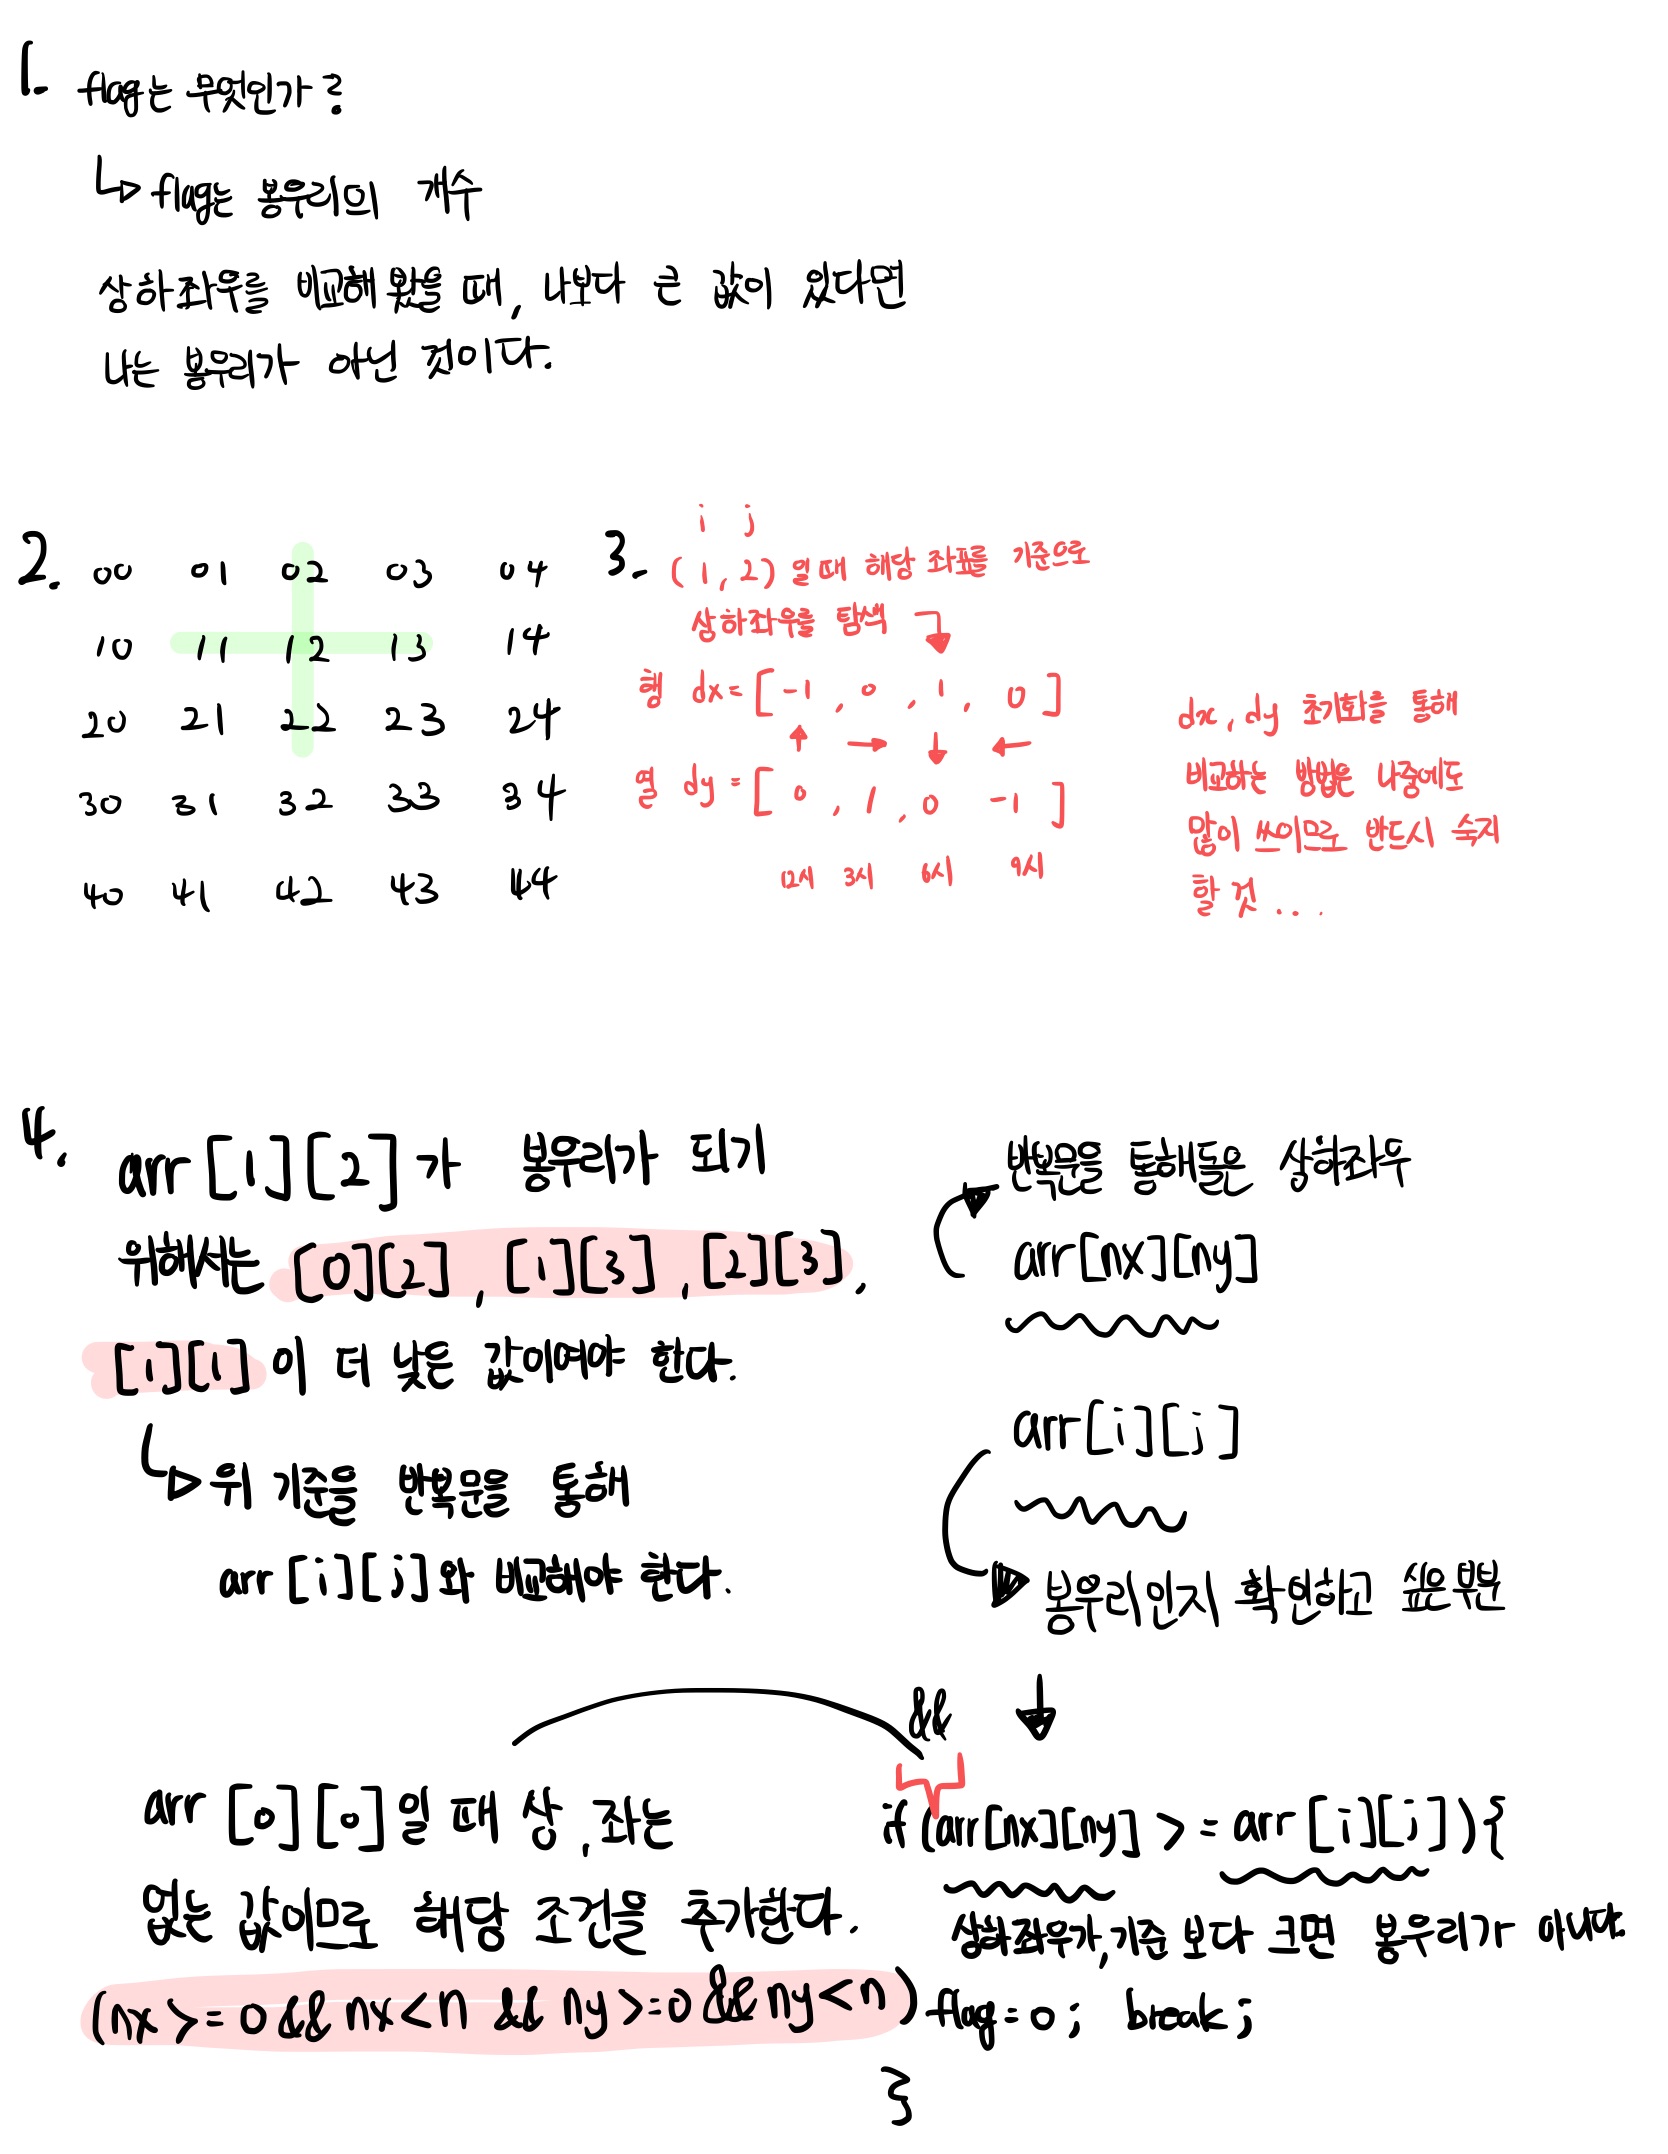 1. flag는 무엇인가?
flag는 봉우리의 개수
상하좌우를 비교해봤을 때, 나보다 큰 값이 있다면
나는 봉우리가 아닌 것이다.
2.
00 01 02 03 04
10 11 12 13 14
20 21 22 23 24
30 31 32 33 34
40 41 42 43 44
3.
i j
(1, 2) 일 때 해당 좌표를 기준으로
상하좌우를 탐색
행 dx=[-1, 0, 1, 0]
↑ → ↓ ←
열 dy=[0, 1, 0 -1]
12시 3시 6시 9시
dx, dy 초기화를 통해
비교하는 방법은 나중에도
많이 쓰이므로 반드시 숙지
할 것...
4.
arr[1][2]가 봉우리가 되기
위해서는 [0][2], [1][3], [2][3],
[1][1]이 더 낮은 값이여야 한다.
위 기준을 반복문을 통해
arr[i][j]와 비교해야 한다.
반복문을 통해돌은 상하좌우
arr[nx][ny]
arr[i][j]
봉우리인지 확인하고 싶은부분
arr[0][0]일 때 상, 좌는
없는 값이므로 해당 조건을 추가한다.
(nx>=0&&nx<n && ny>=0&&ny<n)
&&
if(arr[nx][ny] >= arr[i][j]){
상하좌우가, 기준 보다 크면 봉우리가 아니다.
flag=0; break;
}